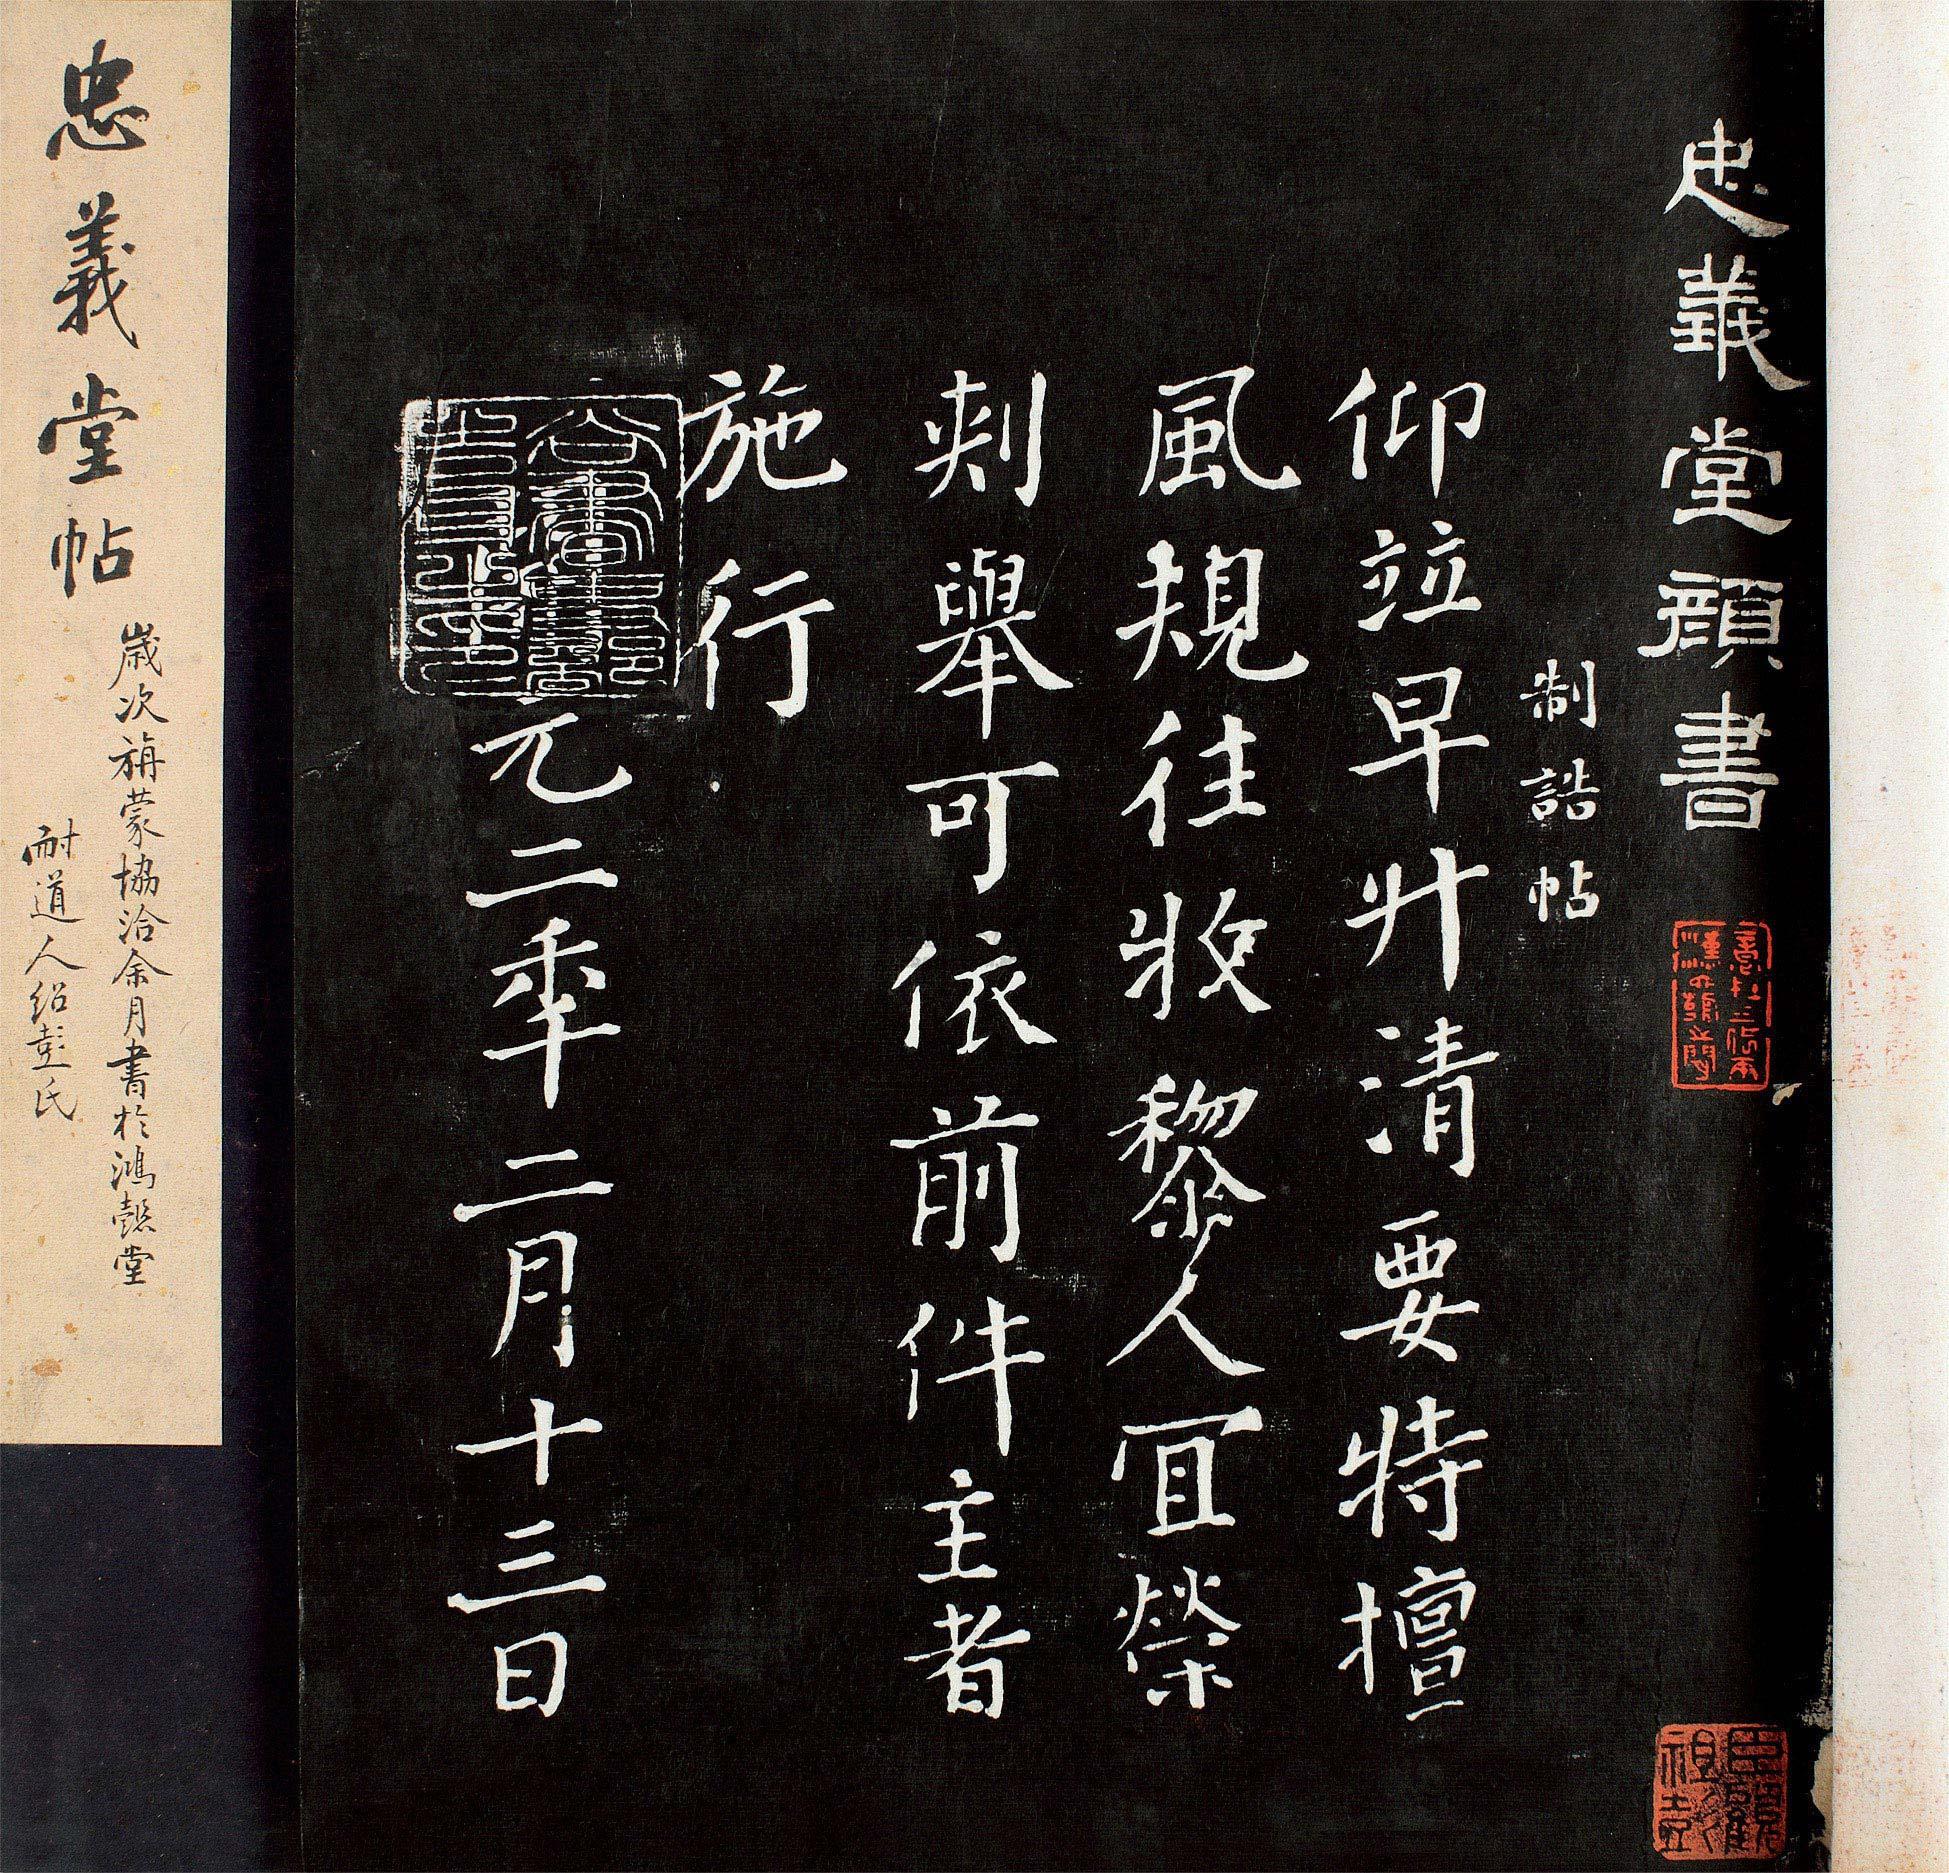 忠義堂顔書
制誥帖
仰竝早升清要特擅
風規往牧黎人冝榮
刾舉可依前件主者
施行
元二年二月十三日
忠義堂帖
歲次旃蒙協洽余月書於鴻懿堂
耐道人紹彭氏